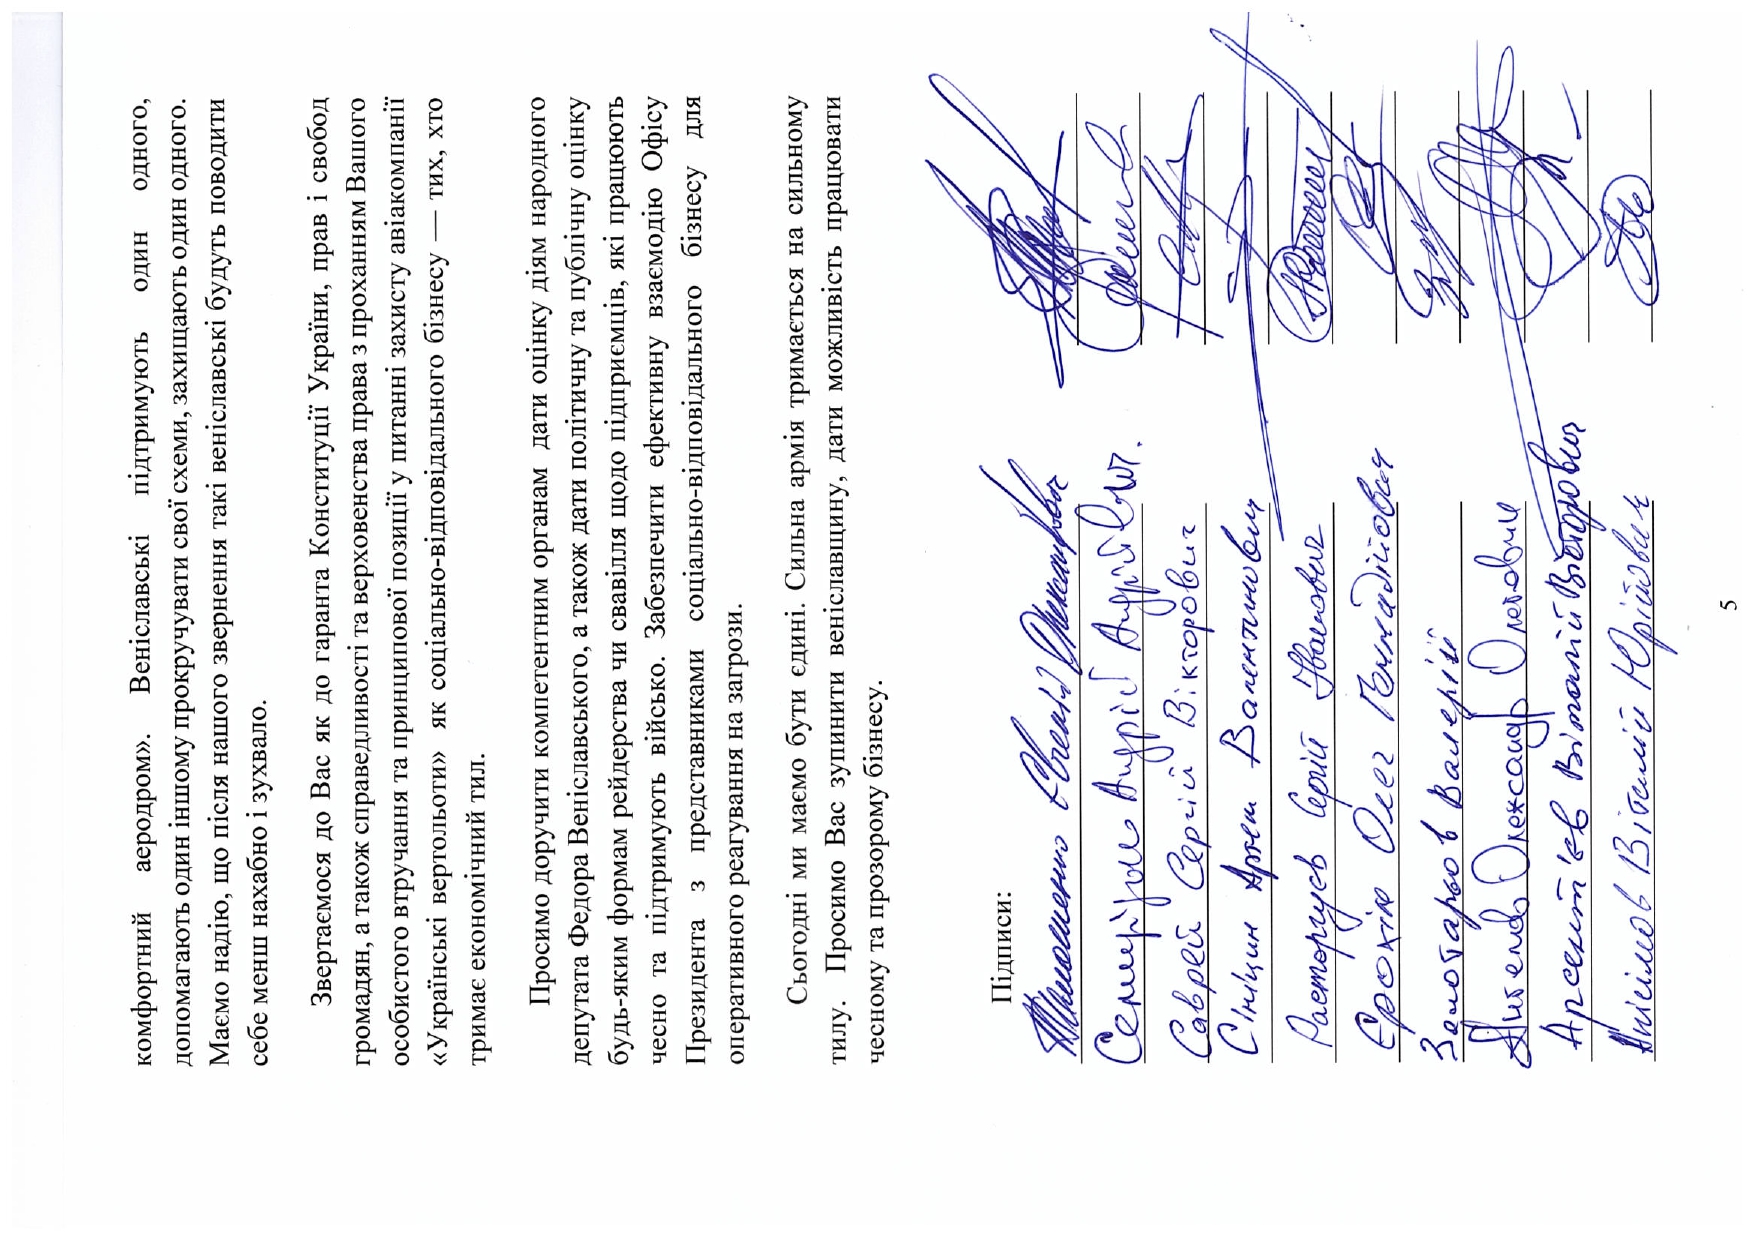 комфортний аеродром». Веніславські підтримують один одного,
допомагають один іншому прокручувати свої схеми, захищають один одного.
Маємо надію, що після нашого звернення такі веніславські будуть поводити
себе менш нахабно і зухвало.
Звертаємося до Вас як до гаранта Конституції України, прав і свобод
громадян, а також справедливості та верховенства права з проханням Вашого
особистого втручання та принципової позиції у питанні захисту авіакомпанії
«Українські вертольоти» як соціально-відповідального бізнесу — тих, хто
тримає економічний тил.
Просимо доручити компетентним органам дати оцінку діям народного
депутата Федора Веніславського, а також дати політичну та публічну оцінку
будь-яким формам рейдерства чи свавілля щодо підприємців, які працюють
чесно та підтримують військо. Забезпечити ефективну взаємодію Офісу
Президента з представниками соціально-відповідального бізнесу для
оперативного реагування на загрози.
Сьогодні ми маємо бути єдині. Сильна армія тримається на сильному
тилу. Просимо Вас зупинити веніславщину, дати можливість працювати
чесному та прозорому бізнесу.
Підписи:
Тимошенко
Андрій Андрійович.
Саврей Сергій Вікторович
Сініцин Артем Валентинович
Расторгуєв Сергій Іванович
Єрохін Олег Геннадійович
Золотарьов Валерій
Олександр Олегович
Арсентьєв Віталій Вікторович
Анісімов Віталій Юрійович
5